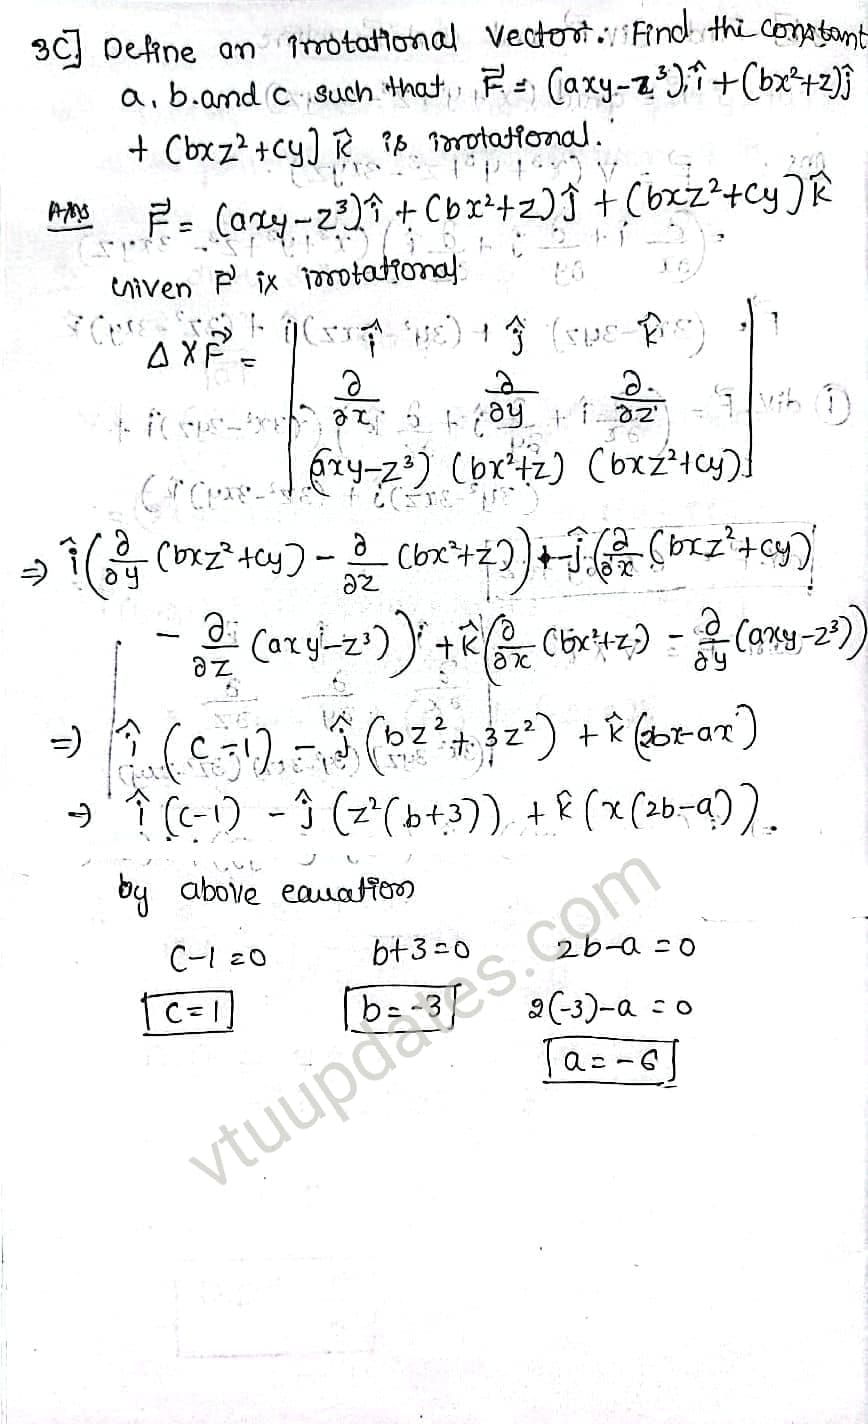 3C] Define an irrotational vector. Find the constant
a, b and c such that F⃗ = (axy-z³)î + (bx²+z)ĵ
+ (bxz²+cy) k̂ is irrotational.
Ans F⃗ = (axy-z³)î + (bx²+z)ĵ + (bxz²+cy)k̂
Given F⃗ ix irrotational
Δ × F⃗ = | î ĵ k̂ |
∂/∂x ∂/∂y ∂/∂z
(axy-z³) (bx²+z) (bxz²+cy)
⇒ î(∂/∂y (bxz²+cy) - ∂/∂z (bx²+z)) - ĵ(∂/∂x (bxz²+cy)
- ∂/∂z (axy-z³)) + k̂(∂/∂x (bx²+z) - ∂/∂y (axy-z³))
⇒ î (c-1) - ĵ (bz²+3z²) + k̂ (2bx-ax)
→ î (c-1) - ĵ (z²(b+3)) + k̂ (x(2b-a)).
by above equation
c-1=0 b+3=0 2b-a=0
c=1 b=-3 2(-3)-a=0
a=-6
vtuupdates.com